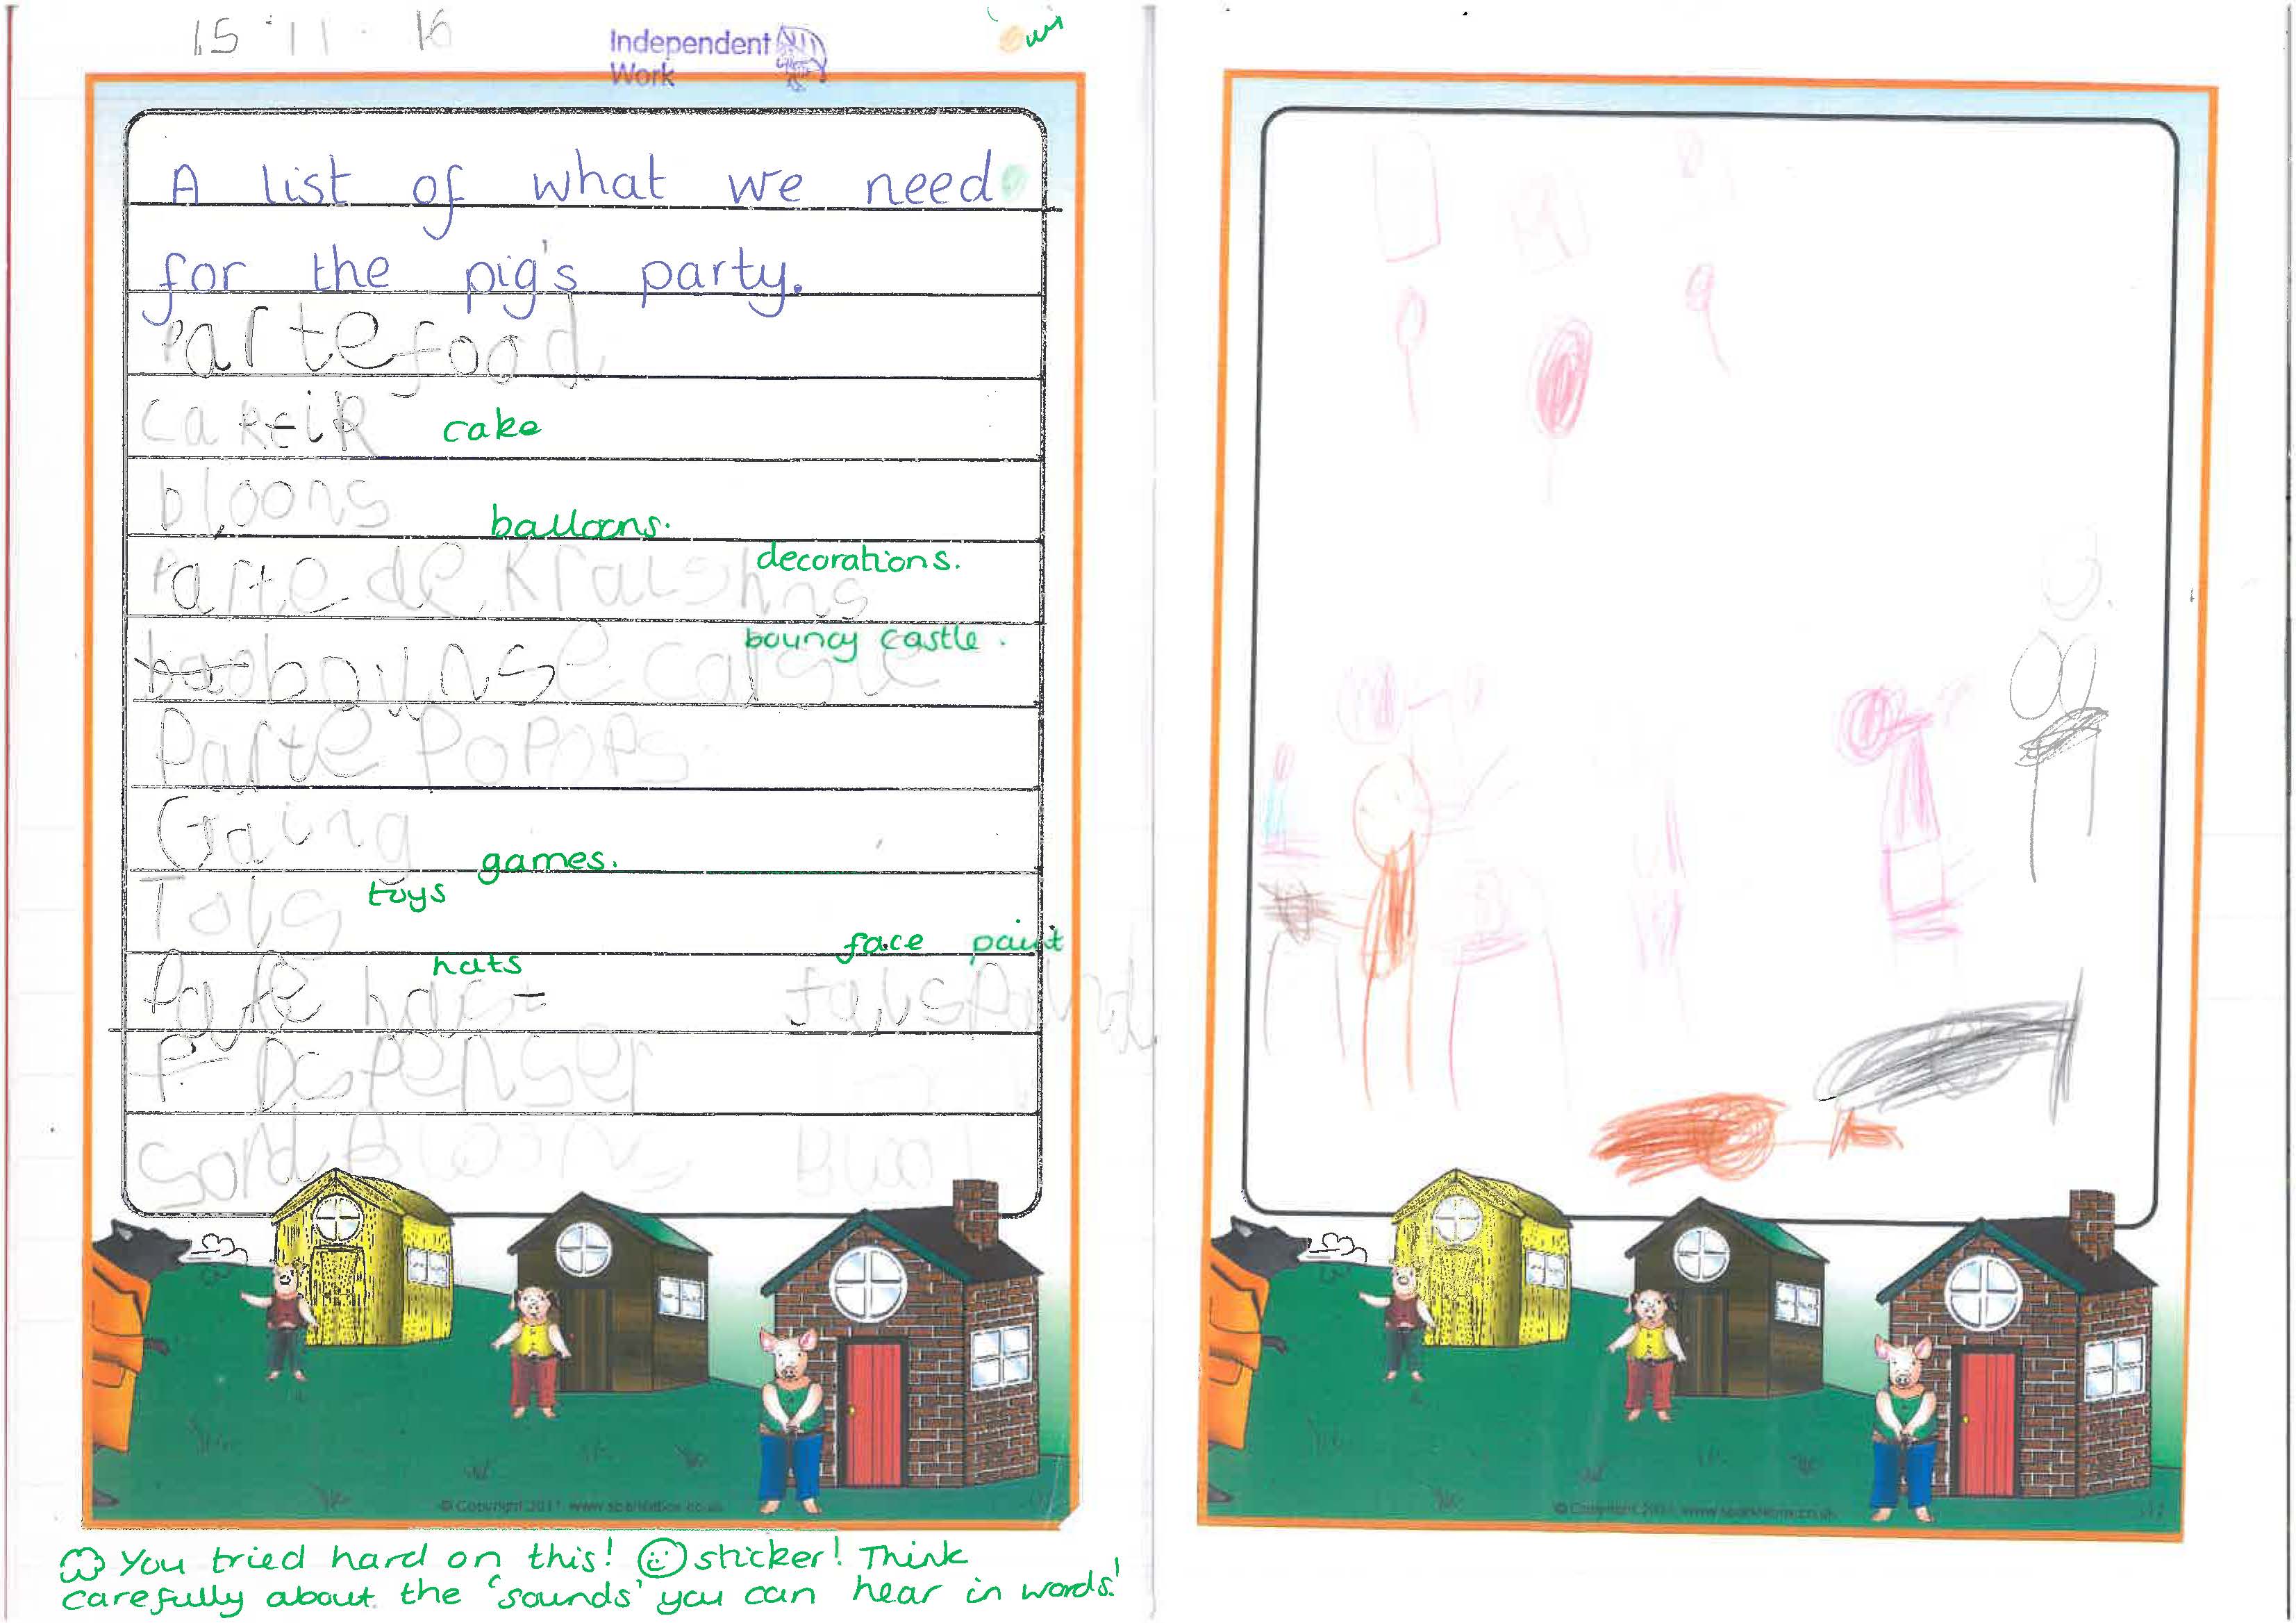 15.11.16
Independent
Work
A list of what we need
for the pig's party.
Parte food
cake
bloons
balloons.
decorations.
Parte de Kraishns
bouncy castle.
bounse
Parte Popops
Gaing
games.
Tois
toys
face paint
hats
Parte
Dispenser
© Copyright 2011 www.sparklebox.co.uk
You tried hard on this! sticker! Think
carefully about the 'sounds' you can hear in words!
© Copyright 2011 www.sparklebox.co.uk